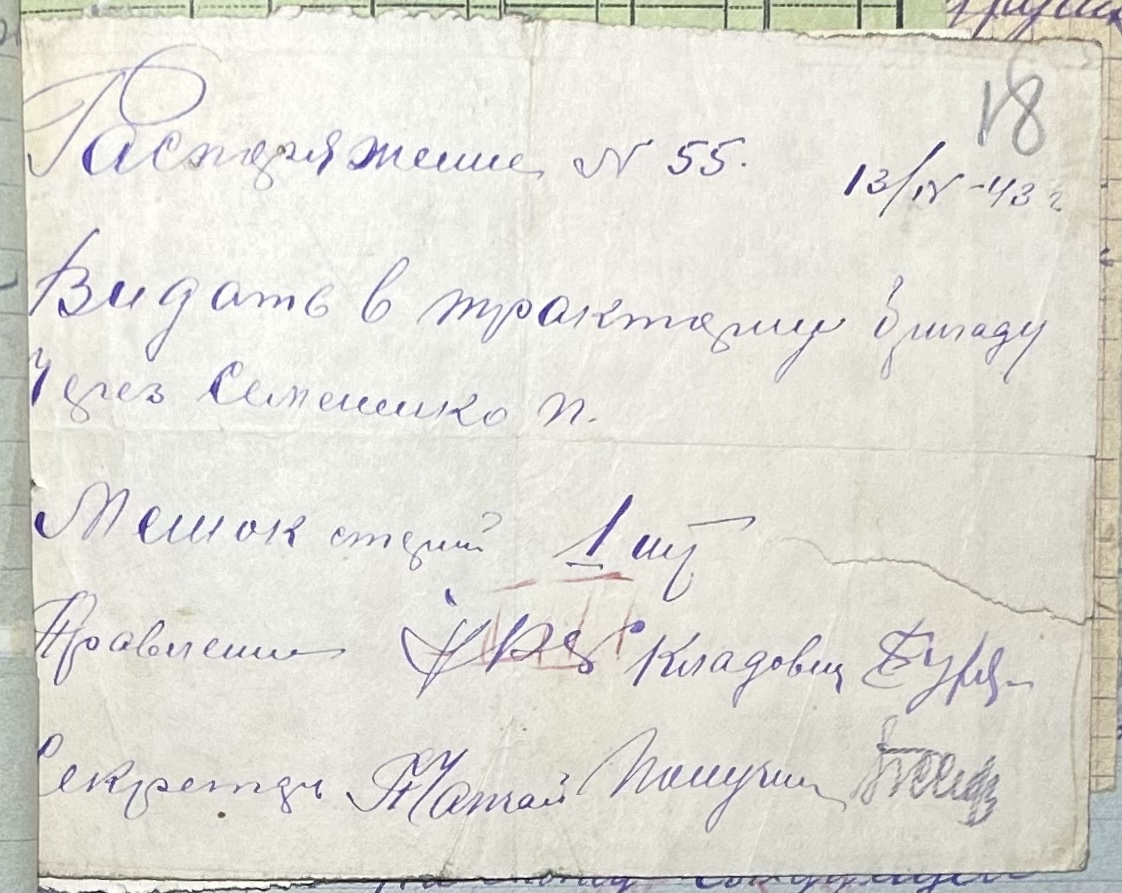 18
Распоряжение N 55.
13/IV-43 г
Видать в тракторну бригаду
Через Семенико П.
Мешок старий 1 шт
Правление Кладовщ
Секретарь Получил